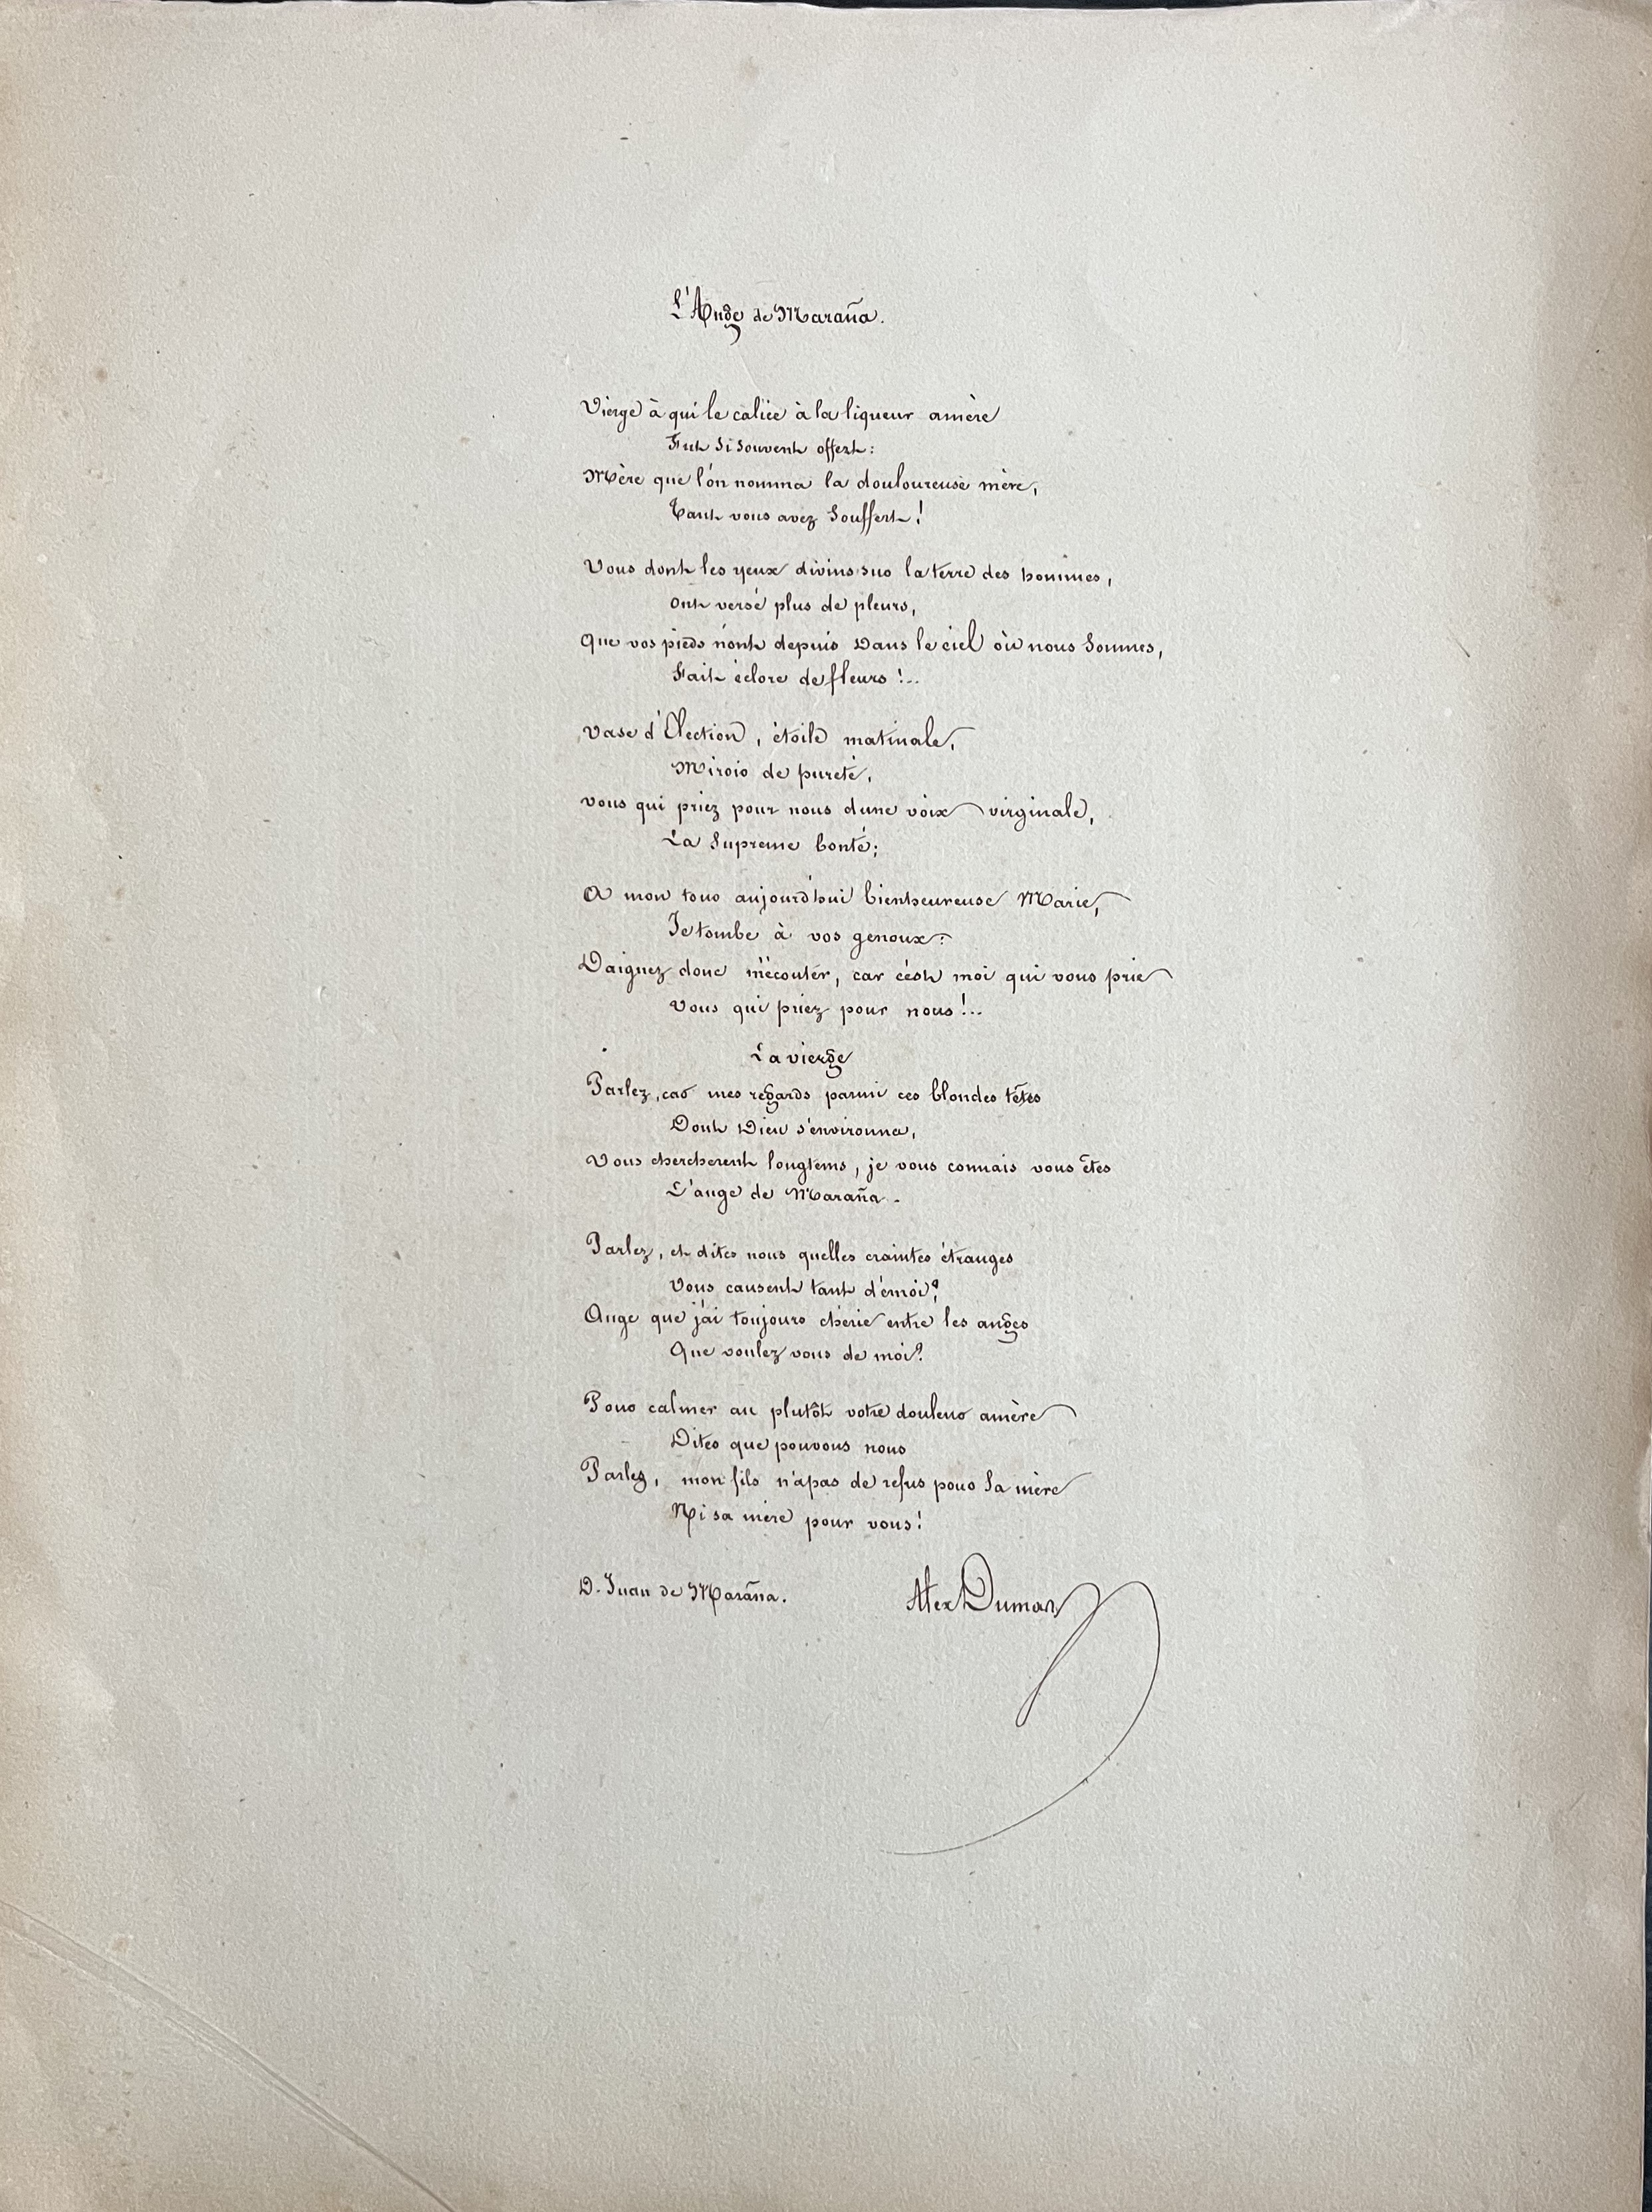 L'Ange de Maraña.
Vierge à qui le calice à la liqueur amère
Fut si souvent offert :
Mère que l'on nomma la douloureuse mère,
Tant vous avez souffert !
Vous dont les yeux divins sur la terre des hommes,
Ont versé plus de pleurs,
Que vos pieds n'ont depuis dans le ciel où nous sommes,
Fait éclore de fleurs !..
Vase d'Élection, étoile matinale,
Miroir de pureté,
vous qui priez pour nous d'une voix virginale,
La Supreme bonté ;
A mon tour aujourd'hui bienheureuse Marie,
Je tombe à vos genoux :
Daignez donc m'écouter, car c'est moi qui vous prie
Vous qui priez pour nous !..
La vierge
Parlez, car mes regards parmi ces blondes têtes
Dont Dieu s'environna,
Vous cherchèrent longtems, je vous connais vous êtes
L'ange de Maraña.
Parlez, et dites nous quelles craintes étranges
Vous causent tant d'émoi ?
Ange que j'ai toujours chérie entre les anges
Que voulez vous de moi ?
Pour calmer au plutôt votre douleur amère
Dites que pouvons nous
Parlez, mon fils n'a pas de refus pour sa mère
Ni sa mère pour vous !
D. Juan de Maraña.
Alex Dumas